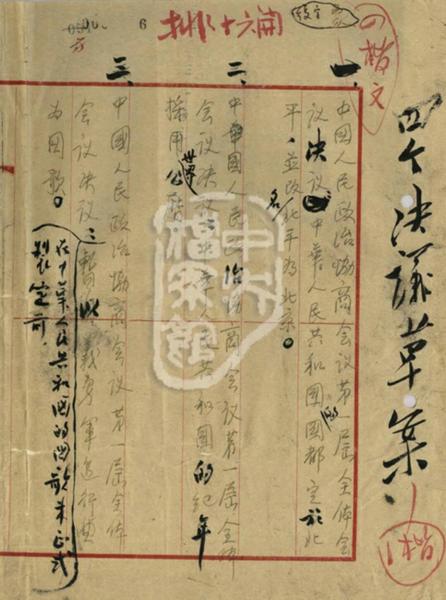 四个决議草案
一、中國人民政治协商会议第一届全体会
议決议中華人民共和國的國都定於北
平，並改名北平为北京。
二、中國人民政治协商会议第一届全体
会议决议中華人民共和國的纪年
採用世界公
三、中國人民政治协商会议第一届全体
会议决议：暫以義勇軍進行曲
为国歌。
在中華人民共和国的国歌未正式
製定前，
排十六開
6
中央檔案館